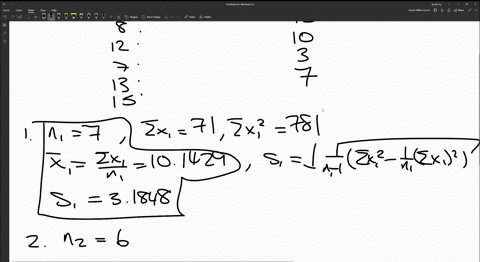 8
12 10
7 3
13 7
15
1. n₁ = 7 , Σx₁ = 71 , Σx₁² = 781
x̄₁ = Σx₁/n₁ = 10.1429 , S₁ = √(1/(n₁-1) (Σx₁² - 1/n₁ (Σx₁)²))
S₁ = 3.1848
2. n₂ = 6